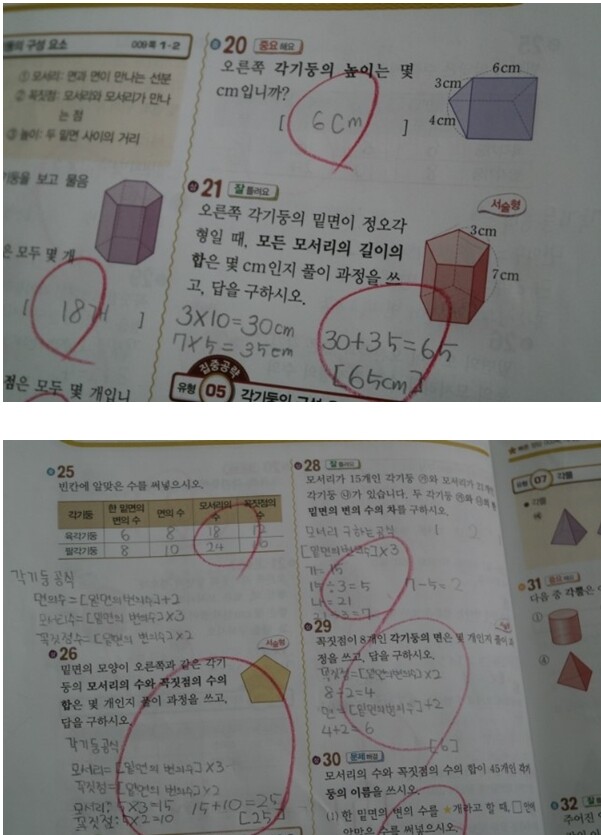 구성 요소
009쪽 1·2
① 모서리: 면과 면이 만나는 선분
② 꼭짓점: 모서리와 모서리가 만나
는 점
③ 높이: 두 밑면 사이의 거리
기둥을 보고 물음
은 모두 몇 개
[ 18개 ]
점은 모두 몇 개입니
20 중요해요
오른쪽 각기둥의 높이는 몇
cm입니까?
[ 6cm ]
6cm
3cm
4cm
21 잘 틀려요
서술형
오른쪽 각기둥의 밑면이 정오각
형일 때, 모든 모서리의 길이의
합은 몇 cm인지 풀이 과정을 쓰
고, 답을 구하시오.
3cm
7cm
3×10=30cm
7×5=35cm
30+35=65
[65cm]
집중공략
유형 05 각기둥의 구성
25
빈칸에 알맞은 수를 써넣으시오.
각기둥 한 밑면의 변의 수 면의 수 모서리의 수 꼭짓점의 수
육각기둥 6 8 18 12
팔각기둥 8 10 24
각기둥공식
면의수=[밑면의 변의수]+2
모서리수=[밑면의 변의수]×3
꼭짓점수=[밑면의 변의수]×2
26
서술형
밑면의 모양이 오른쪽과 같은 각기
둥의 모서리의 수와 꼭짓점의 수의
합은 몇 개인지 풀이 과정을 쓰고,
답을 구하시오.
각기둥공식
모서리=[밑면의 변의수]×3
꼭짓점=[밑면의 변의수]×2
모서리: 5×3=15 15+10=25
꼭짓점: 5×2=10 [25]
28 잘 틀려요
모서리가 15개인 각기둥 ㉮와 모서리가 21개인
각기둥 ㉯가 있습니다. 두 각기둥 ㉮와 ㉯의 한
밑면의 변의 수의 차를 구하시오.
모서리 구하는공식
[밑면의변의수]×3
가=15
15÷3=5 7-5=2
나=21
21÷3=7
29
꼭짓점이 8개인 각기둥의 면은 몇 개인지 풀이 과
정을 쓰고, 답을 구하시오.
꼭짓점=[밑면의변의수]×2
8÷2=4
면=[밑면의변의수]+2
4+2=6
[6]
30 문제해결
모서리의 수와 꼭짓점의 수의 합이 45개인 각기
둥의 이름을 쓰시오.
(1) 한 밑면의 변의 수를 ★개라고 할 때, □안에
알맞은 수를 써넣으시오.
유형 07 각뿔
각뿔
31 중요해요
다음 중 각뿔은
①
④
32 잘 틀려요
주어진